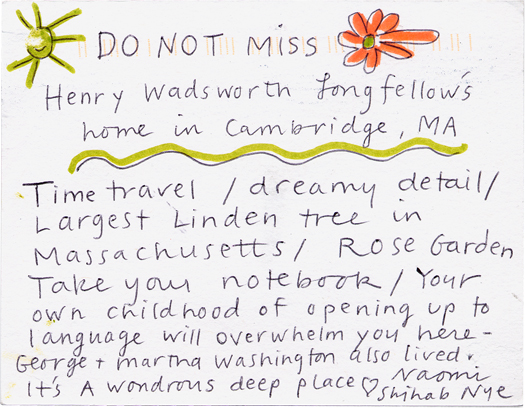 DO NOT MISS
Henry Wadsworth Longfellow's
home in Cambridge, MA
Time travel / dreamy detail/
Largest Linden tree in
Massachusetts/ ROSE Garden
Take your notebook / Your
own childhood of opening up to
language will overwhelm you here-
George + Martha Washington also lived.
It's A wondrous deep place ♡ Naomi
Shihab Nye